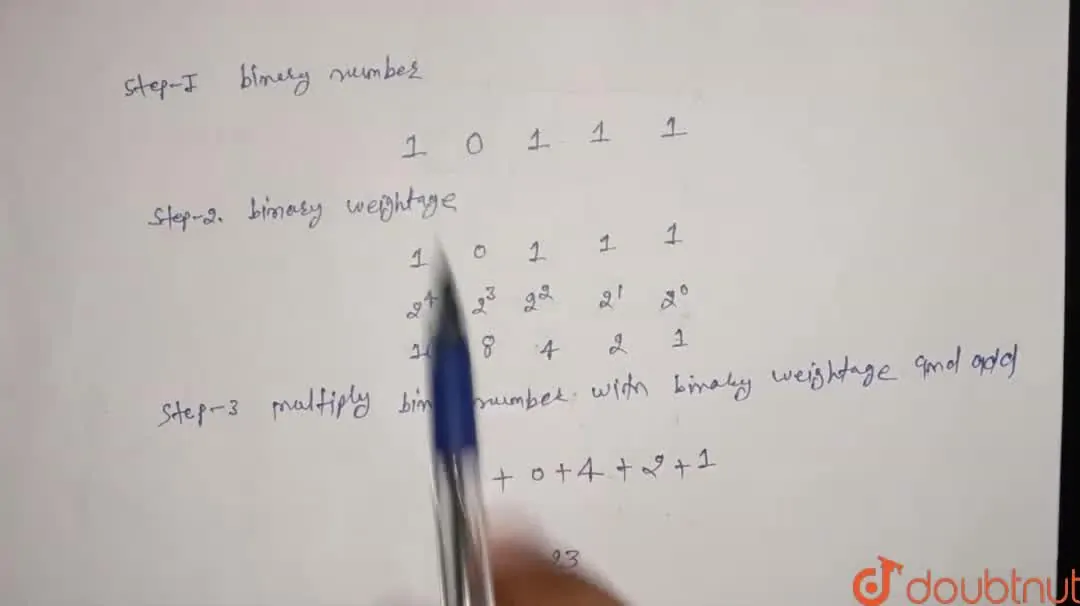 Step-I binary number
1 0 1 1 1
Step-2. binary weightage
1 0 1 1 1
2⁴ 2³ 2² 2¹ 2⁰
8 4 2 1
Step-3 multiply number with binary weightage and add
+ 0 + 4 + 2 + 1
23
doubtnut